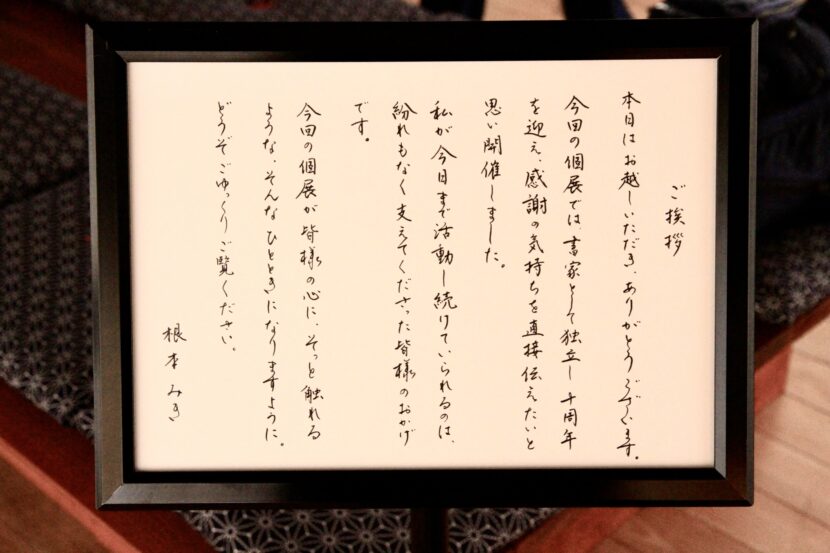 ご挨拶
本日はお越しいただき、ありがとうございます。
今回の個展では、書家として独立し十周年
を迎え、感謝の気持ちを直接伝えたいと
思い開催しました。
私が今日まで活動し続けていられるのは、
紛れもなく支えてくださった皆様のおかげ
です。
今回の個展が皆様の心に、そっと触れる
ような、そんなひとときになりますように。
どうぞごゆっくりご覧ください。
根本みき